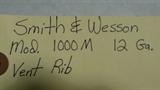 Smith & Wesson
Mod. 1000M 12 Ga.
Vent Rib